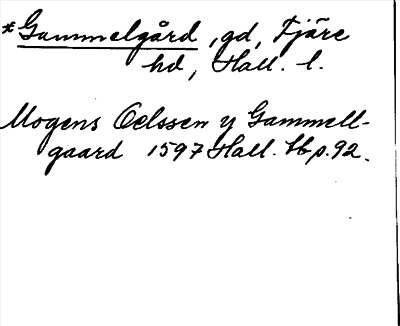 *Gammelgård, gd, Fjäre
hd, Hall. l.
Mogens Oelssen y Gammell-
gaard 1597 Hall. tb p. 92.